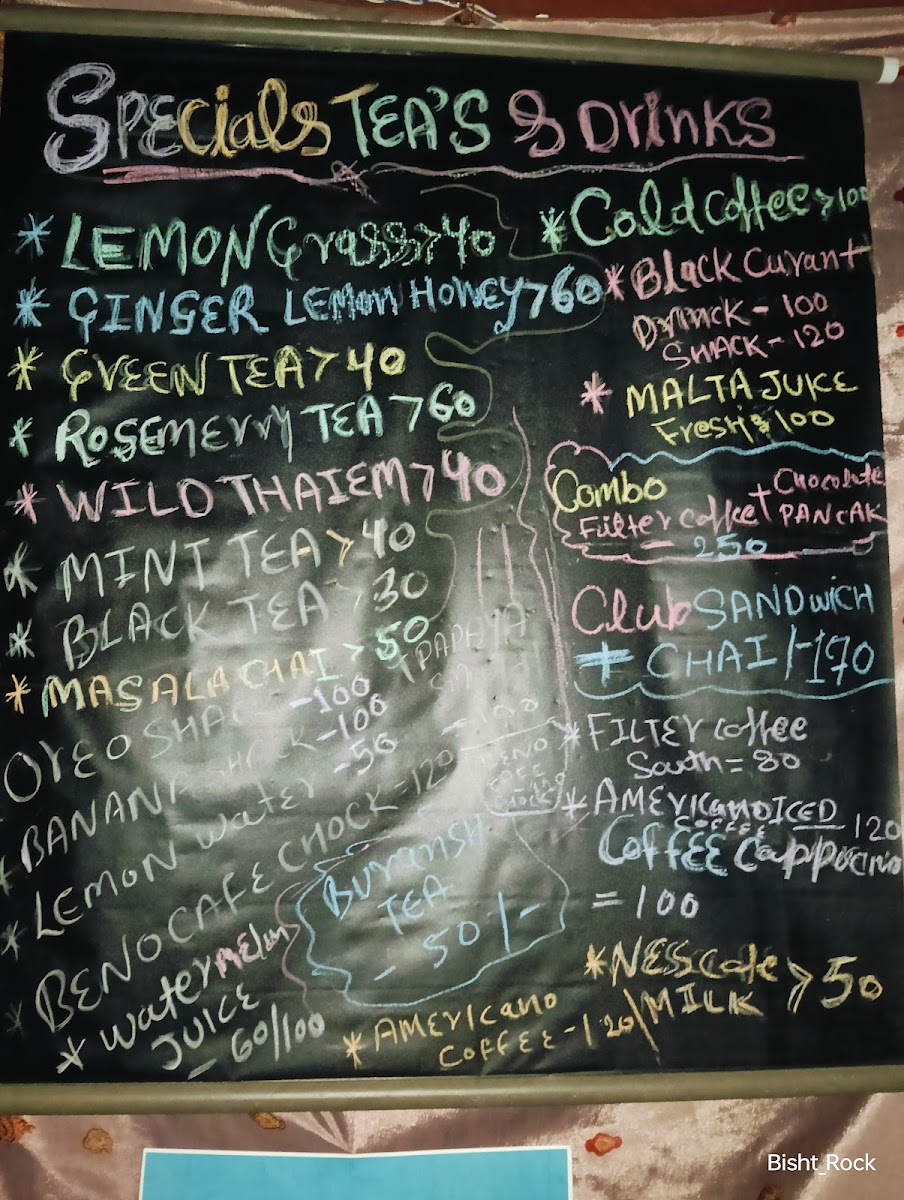 SPEcials TEA'S & DrinKS
* LEMON Grass > 40
* GINGER LEMON HONEY > 60
* GREEN TEA > 40
* ROSEMERRY TEA > 60
* WILD THAIEM > 40
* MINT TEA > 40
* BLACK TEA > 30
* MASALA CHAI > 50
OREO SHAC -100
* BANANA SHACK -100
* LEMON water -50
* BENO CAFE CHOCK = 120
* water MELON
JUICE
- 60/100
(PAPAYA
- 100
BENO
CAFE
CHOCK
Buransh
TEA
- 50/-
* AMERICANO
COFFEE - 120
* Cold Coffee > 100
* BLACK Curant
Drinck - 100
SHACK - 120
* MALTA JUICE
Fresh 100
Combo
Filter coffee + Chocolate
PANCAK
250
Club SANDWICH
+ CHAI /-170
* FILTER Coffee
South = 80
* AMERICANO ICED
COFFEE 120
COFFEE Cappucino
= 100
* NESScafe
MILK > 50
Bisht_Rock